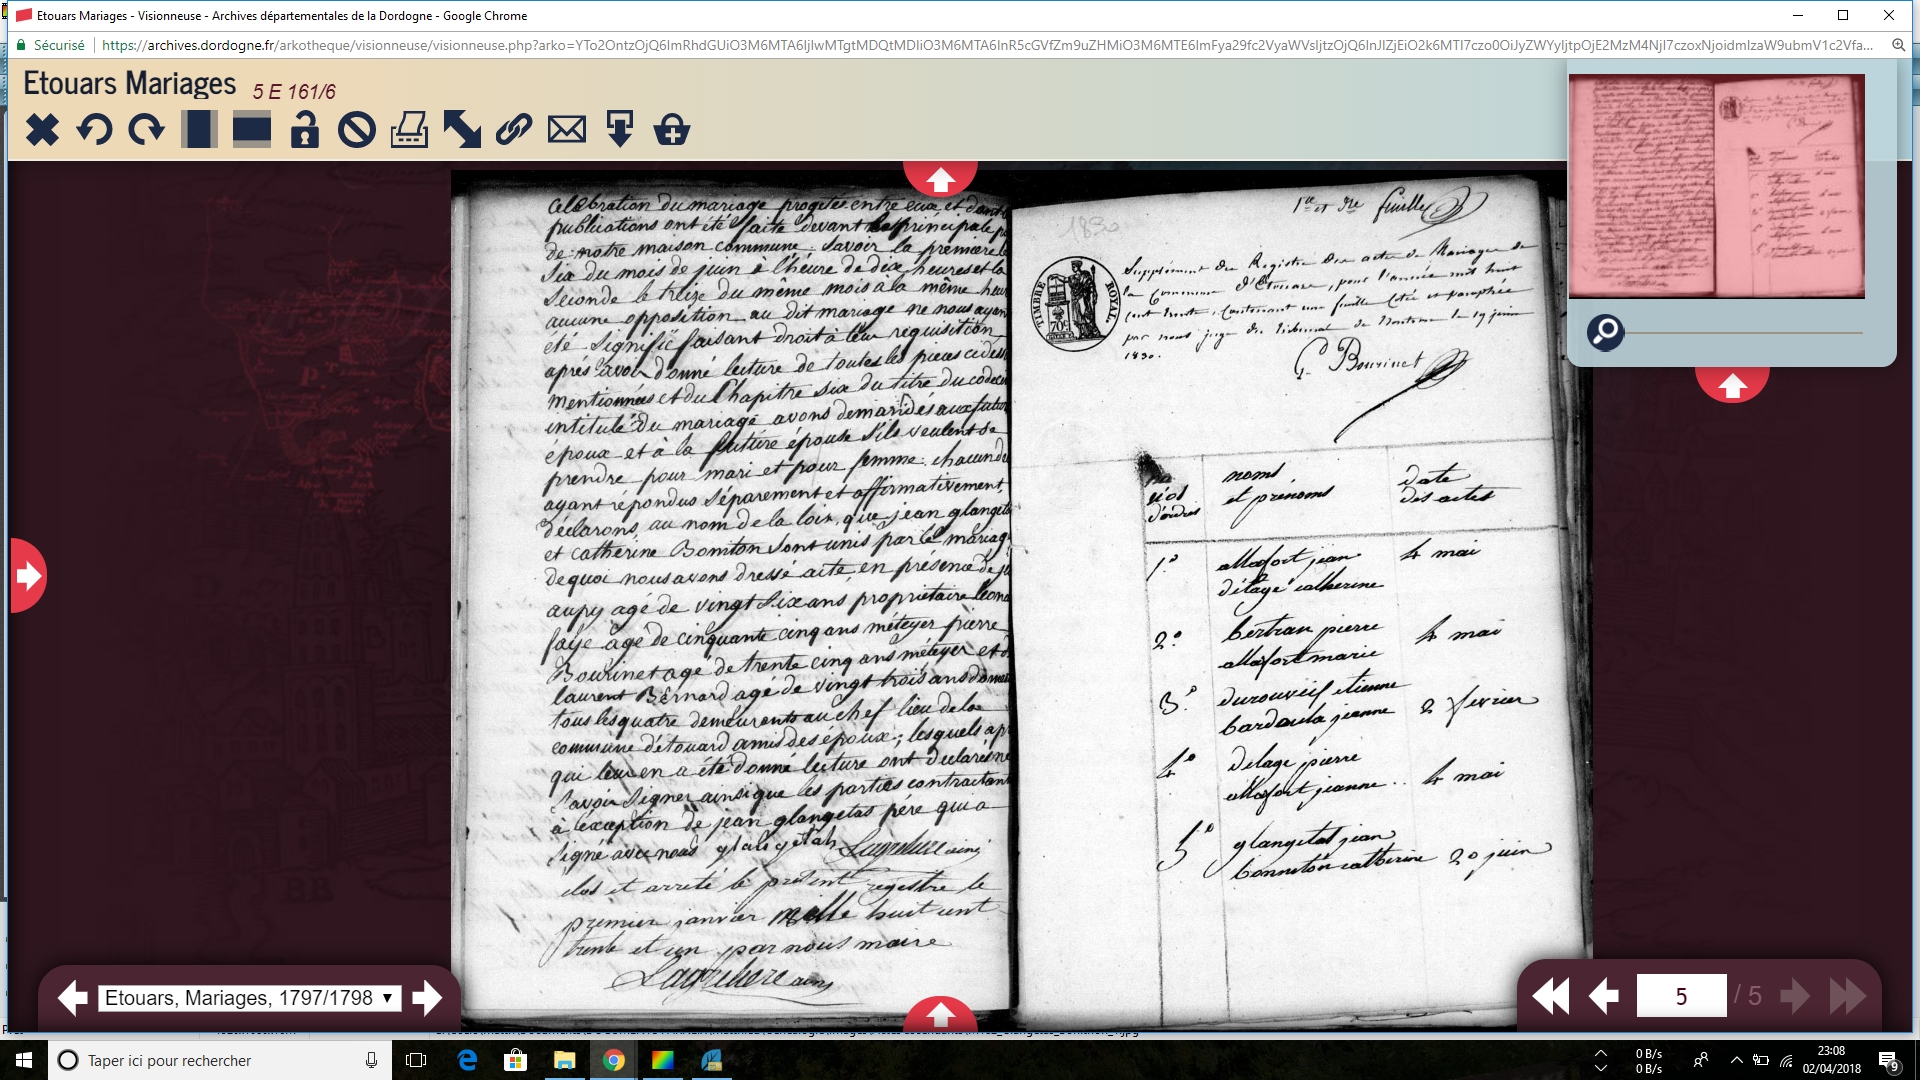 Etouars Mariages - Visionneuse - Archives départementales de la Dordogne - Google Chrome
Sécurisé
https://archives.dordogne.fr/arkotheque/visionneuse/visionneuse.php?arko=
Etouars Mariages 5 E 161/6
celebration du mariage progetée entre eux et dont
publications ont été faite devant la principale
de notre maison commune. Savoir la premiere le
Six du mois de juin à l'héure de dix heures et la
seconde le treize du même mois à la même heure
aucune opposition au dit mariage ne nous ayant
été signifié faisant droit à leur requisition
aprés avoir donné lecture de toutes les pieces ci dessus
mentionnées et du Chapitre six du titre du code
intitulé du mariage avons demandés aux futur
époux et à la future épouse s'ils veulent se
prendre pour mari et pour femme. chacun d'eux
ayant répondus séparement et affirmativement,
déclarons, au nom de la loix, que jean glangetas
et catherine Boniton sont unis par le mariage
de quoi nous avons dressé acte, en présence de
aupy agé de vingt six ans propriétaire leonard
faye agé de cinquante cinq ans méteyer pierre
Bourinet agé de trente cinq ans méteyer et de
laurent Bernard agé de vingt trois ans
tous les quatre demeurents au chef lieu de la
commune d'étouard amis des époux; lesquels apr
qui leur en a été donné lecture ont declarés ne
savoir signer ainsi que les parties contractant
à l'exception de jean glangetas pére qui a
signé avec nous glangetah
clos et arreté le présent registre le
premier janvier mille huit cent
trente et un par nous maire
1830
1re et dre feuille
TIMBRE ROYAL.
70c
Supplément du Registre des actes de Mariages de
la Commune d'Etouars, pour l'année mil huit
cent trente, Contenant une feuille Cotée et paraphée
par nous juge du Tribunal de Nontron le 19 juin
1830.
Bourinet
nos d'ordres
noms et prénoms
date des actes
1.° allafort jean 4 mai
délage catherine
2.° bertran pierre 4 mai
allafort marie
3.° durouveix etienne
bardoula jeanne 2 fevrier
4° délage pierre
allafort jeanne .. 4 mai
5° glangetas jean
bonniton catherine 20 juin
Etouars, Mariages, 1797/1798
5 / 5
Taper ici pour rechercher
0 B/s
0 B/s
23:08
02/04/2018
9